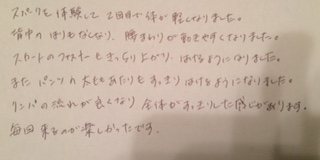 スパリを体験して2回目で体が軽くなりました。
背中のはりもなくなり、腕まわりが動きやすくなりました。
スカートのファスナーもきっちり上がり はけるようになりました。
またパンツの太ももあたりもすっきりはけるようになりました。
リンパの流れが良くなり 全体がすっきりした感じがあります。
毎回 来るのが楽しかったです。